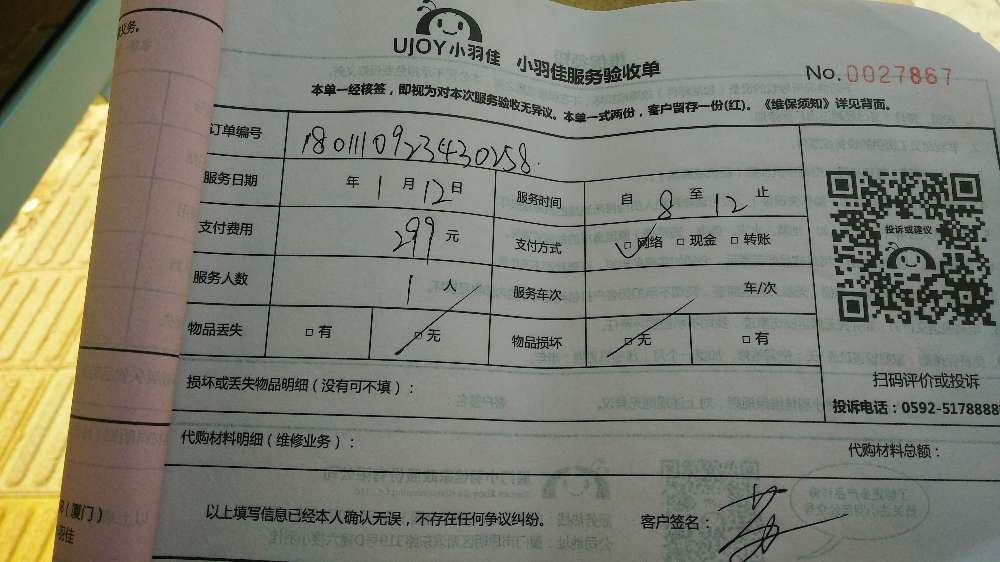 义务。
UJOY小羽佳 小羽佳服务验收单
No.0027867
本单一经核签，即视为对本次服务验收无异议。本单一式两份，客户留存一份(红)。《维保须知》详见背面。
订单编号 180111092343​0258
服务日期 年 1 月 12 日 服务时间 自 8 至 12 止
支付费用 299 元 支付方式 □网络 □现金 □转账
服务人数 1 人 服务车次 车/次
物品丢失 □有 □无 物品损坏 □无 □有
投诉或建议
扫码评价或投诉
投诉电话：0592-5178888
损坏或丢失物品明细（没有可不填）：
代购材料明细（维修业务）： 代购材料总额：
以上填写信息已经本人确认无误，不存在任何争议纠纷。 客户签名：
（厦门）
羽佳